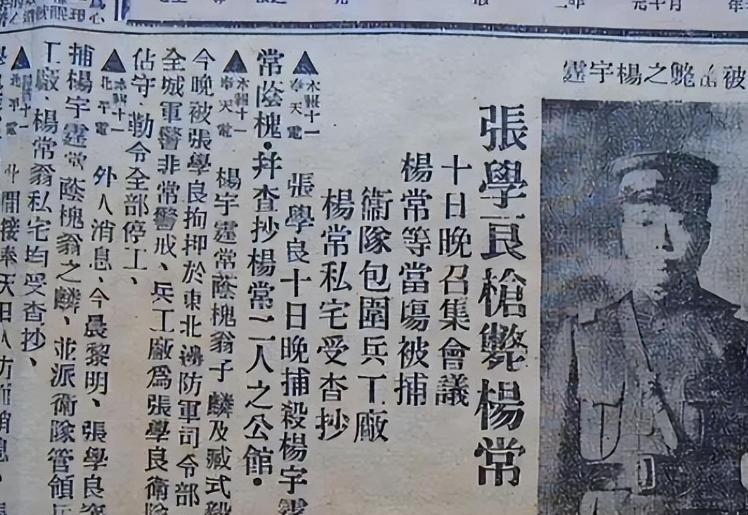 被击毙之楊宇霆
張學良槍斃楊常
十日晚召集會議
楊常等當場被捕
衛隊包圍兵工廠
楊常私宅受查抄
▲本報十一奉天電 張學良十日晚捕殺楊宇霆
常蔭槐·幷查抄楊常二人之公館·
▲本報十一奉天電 楊宇霆常蔭槐翁子麟及臧式毅
今晚被張學良拘押於東北邊防軍司令部
全城軍警非常警戒、兵工廠爲張學良衛隊
佔守、勒令全部停工、
▲本報十一北平電 外人消息、今晨黎明、張學良
捕楊宇霆常蔭槐翁之麟、並派衛隊管領兵
工廠、楊常翁私宅均受查抄、
▲北平電 此間接奉天日人方面消息、